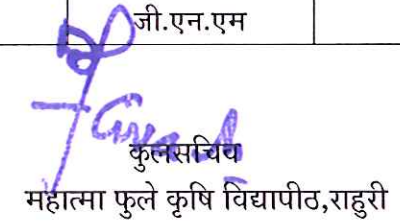 जी.एन.एम
कुलसचिव
महात्मा फुले कृषि विद्यापीठ,राहुरी